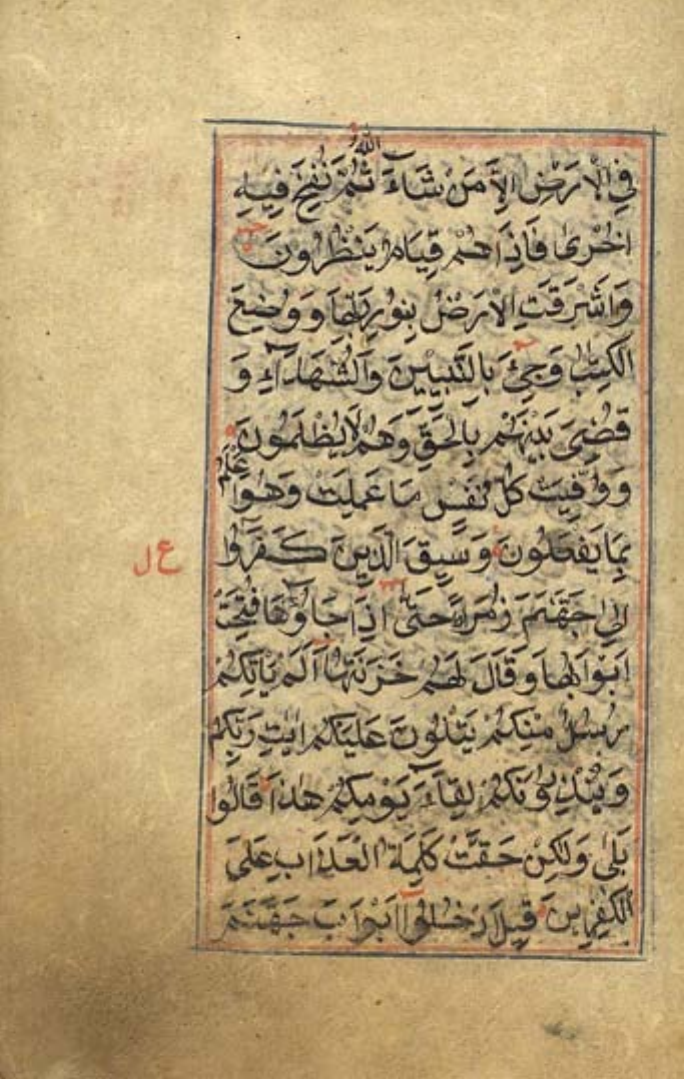 فِي الْاَرْضِ اِلَّا مَنْ شَاءَ اللّٰهُ ثُمَّ نُفِخَ فِيهِ
اُخْرٰى فَاِذَا هُمْ قِيَامٌ يَنْظُرُونَ
وَاَشْرَقَتِ الْاَرْضُ بِنُورِ رَبِّهَا وَوُضِعَ
الْكِتٰبُ وَجِئَ بِالنَّبِيّٖنَ وَالشُّهَدَآءِ وَ
قُضِيَ بَيْنَهُمْ بِالْحَقِّ وَهُمْ لَا يُظْلَمُونَ
وَوُفِّيَتْ كُلُّ نَفْسٍ مَا عَمِلَتْ وَهُوَ اَعْلَمُ
بِمَا يَفْعَلُونَ وَسِيقَ الَّذِينَ كَفَرُوا
اِلٰى جَهَنَّمَ زُمَرًا حَتّٰى اِذَا جَاؤُهَا فُتِحَتْ
اَبْوَابُهَا وَقَالَ لَهُمْ خَزَنَتُهَا اَلَمْ يَاْتِكُمْ
رُسُلٌ مِنْكُمْ يَتْلُونَ عَلَيْكُمْ اٰيٰتِ رَبِّكُمْ
وَيُنْذِرُونَكُمْ لِقَاءَ يَوْمِكُمْ هٰذَا قَالُوا
بَلٰى وَلٰكِنْ حَقَّتْ كَلِمَةُ الْعَذَابِ عَلَى
الْكٰفِرِينَ قِيلَ ادْخُلُوا اَبْوَابَ جَهَنَّمَ